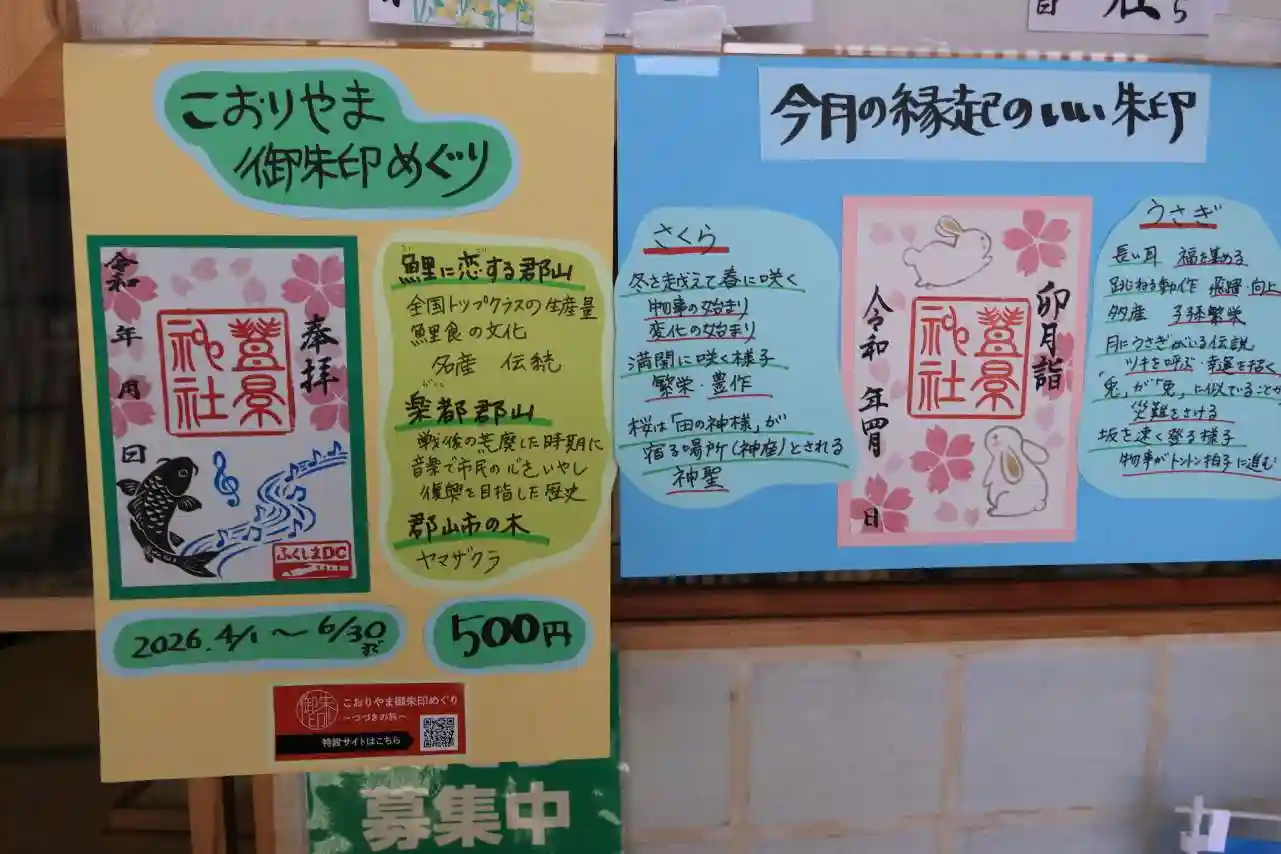 こおりやま
御朱印めぐり
令和
年
月
日
奉拝
豊景
神社
ふくしまDC
鯉に恋する郡山
全国トップクラスの生産量
鯉食の文化
名産 伝統
楽都郡山
戦後の荒廃した時期に
音楽で市民の心をいやし
復興を目指した歴史
郡山市の木
ヤマザクラ
2026.4/1〜6/30まで
500円
御朱印
こおりやま御朱印めぐり
〜つづきの旅〜
特設サイトはこちら
募集中
今月の縁起のいい朱印
さくら
冬を越えて春に咲く
物事の始まり
変化の始まり
満開に咲く様子
繁栄・豊作
桜は「田の神様」が
宿る場所(神座)とされる
神聖
卯月詣
豊景
神社
令和
年四月
日
うさぎ
長い耳 福を集める
跳ねる動作 飛躍・向上
多産 子孫繁栄
月にうさぎがいる伝説
ツキを呼ぶ・幸運を招く
「兎」が「免」に似ていることから
災難をさける
坂を速く登る様子
物事がトントン拍子に進む